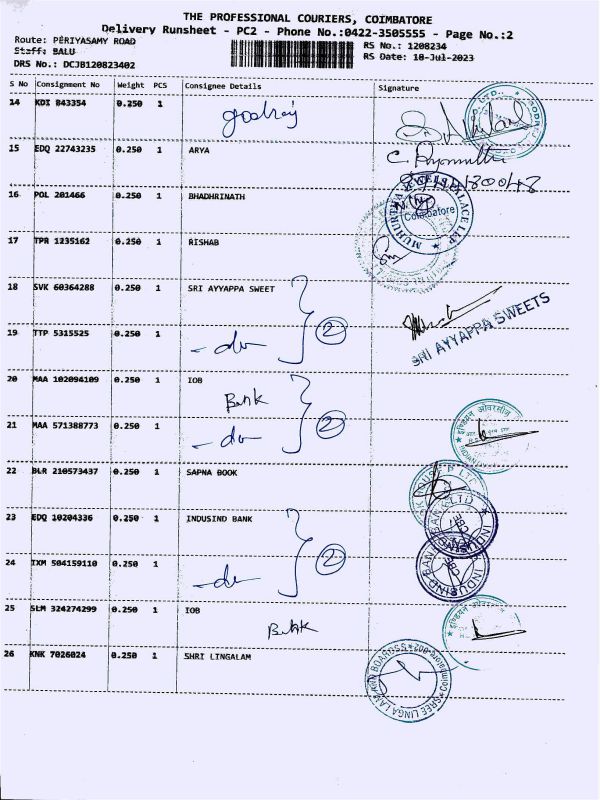 THE PROFESSIONAL COURIERS, COIMBATORE
Delivery Runsheet - PC2 - Phone No.:0422-3505555 - Page No.:2
Route: PERIYASAMY ROAD
Staff: BALU
DRS No.: DCJB120823402
RS No.: 1208234
RS Date: 18-Jul-2023
S No Consignment No Weight PCS Consignee Details Signature
14 KDI 843354 0.250 1 godrej
15 EDQ 22743235 0.250 1 ARYA
16 POL 201466 0.250 1 BHADHRINATH
MUHURTHA JEWEL PALACE LLP
Coimbatore
17 TPR 1235162 0.250 1 RISHAB
18 SVK 60364288 0.250 1 SRI AYYAPPA SWEET
2
SRI AYYAPPA SWEETS
19 TTP 5315525 0.250 1 -do-
20 MAA 102094109 0.250 1 IOB
Bank
2
21 MAA 571388773 0.250 1 -do-
22 BLR 210573437 0.250 1 SAPNA BOOK
23 EDQ 10204336 0.250 1 INDUSIND BANK
2
INDUSIND BANK LTD
CBE
24 IXM 504159110 0.250 1 -do-
INDUSIND BANK LTD
CBE
25 SLM 324274299 0.250 1 IOB
Bank
26 KNK 7026024 0.250 1 SHRI LINGALAM